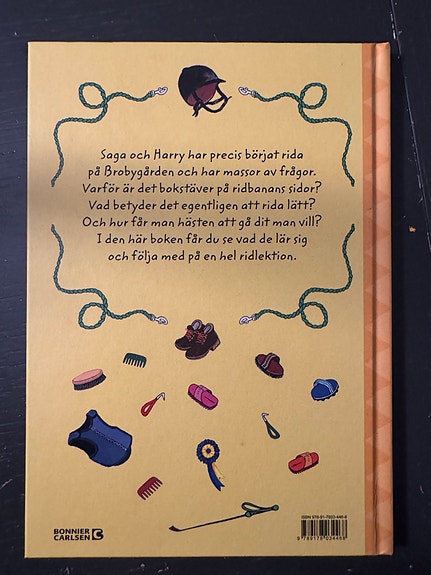 Saga och Harry har precis börjat rida
på Brobygården och har massor av frågor.
Varför är det bokstäver på ridbanans sidor?
Vad betyder det egentligen att rida lätt?
Och hur får man hästen att gå dit man vill?
I den här boken får du se vad de lär sig
och följa med på en hel ridlektion.
BONNIER
CARLSEN
ISBN 978-91-7803-446-8
9 789178 034468